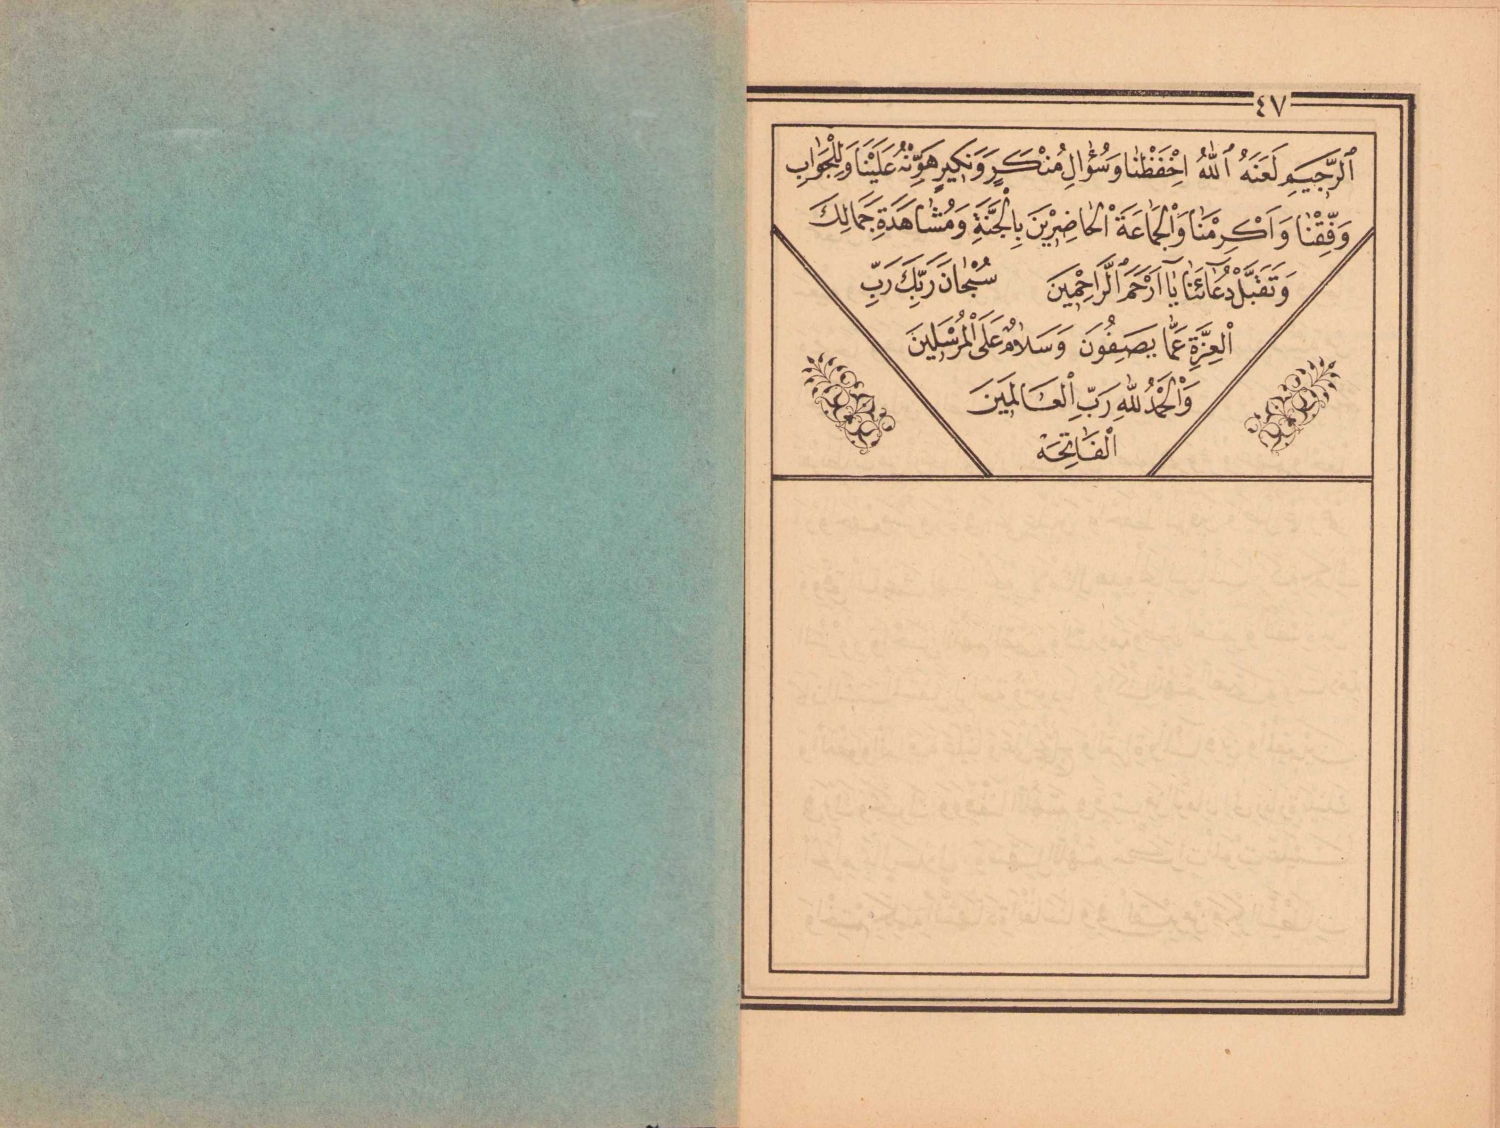 ٤٧
ٱلرَّجِيمِ لَعَنَهُ ٱللّٰهُ اِحْفَظْنَا وَسُؤَالِ مُنْكَرٍ وَنَكِيرٍ هَوِّنْهُ عَلَيْنَا وَلِلْجَوَابِ
وَفِّقْنَا وَاَكْرِمْنَا وَالْجَمَاعَةَ الْحَاضِرِيْنَ بِالْجَنَّةِ وَمُشَاهَدَةِ جَمَالِكَ
وَتَقَبَّلْ دُعَائَنَا يَا اَرْحَمَ الرَّاحِمِيْنَ سُبْحَانَ رَبِّكَ رَبِّ
الْعِزَّةِ عَمَّا يَصِفُونَ وَسَلَامٌ عَلَى الْمُرْسَلِيْنَ
وَالْحَمْدُ لِلّٰهِ رَبِّ الْعَالَمِيَنَ
الْفَاتِحَة